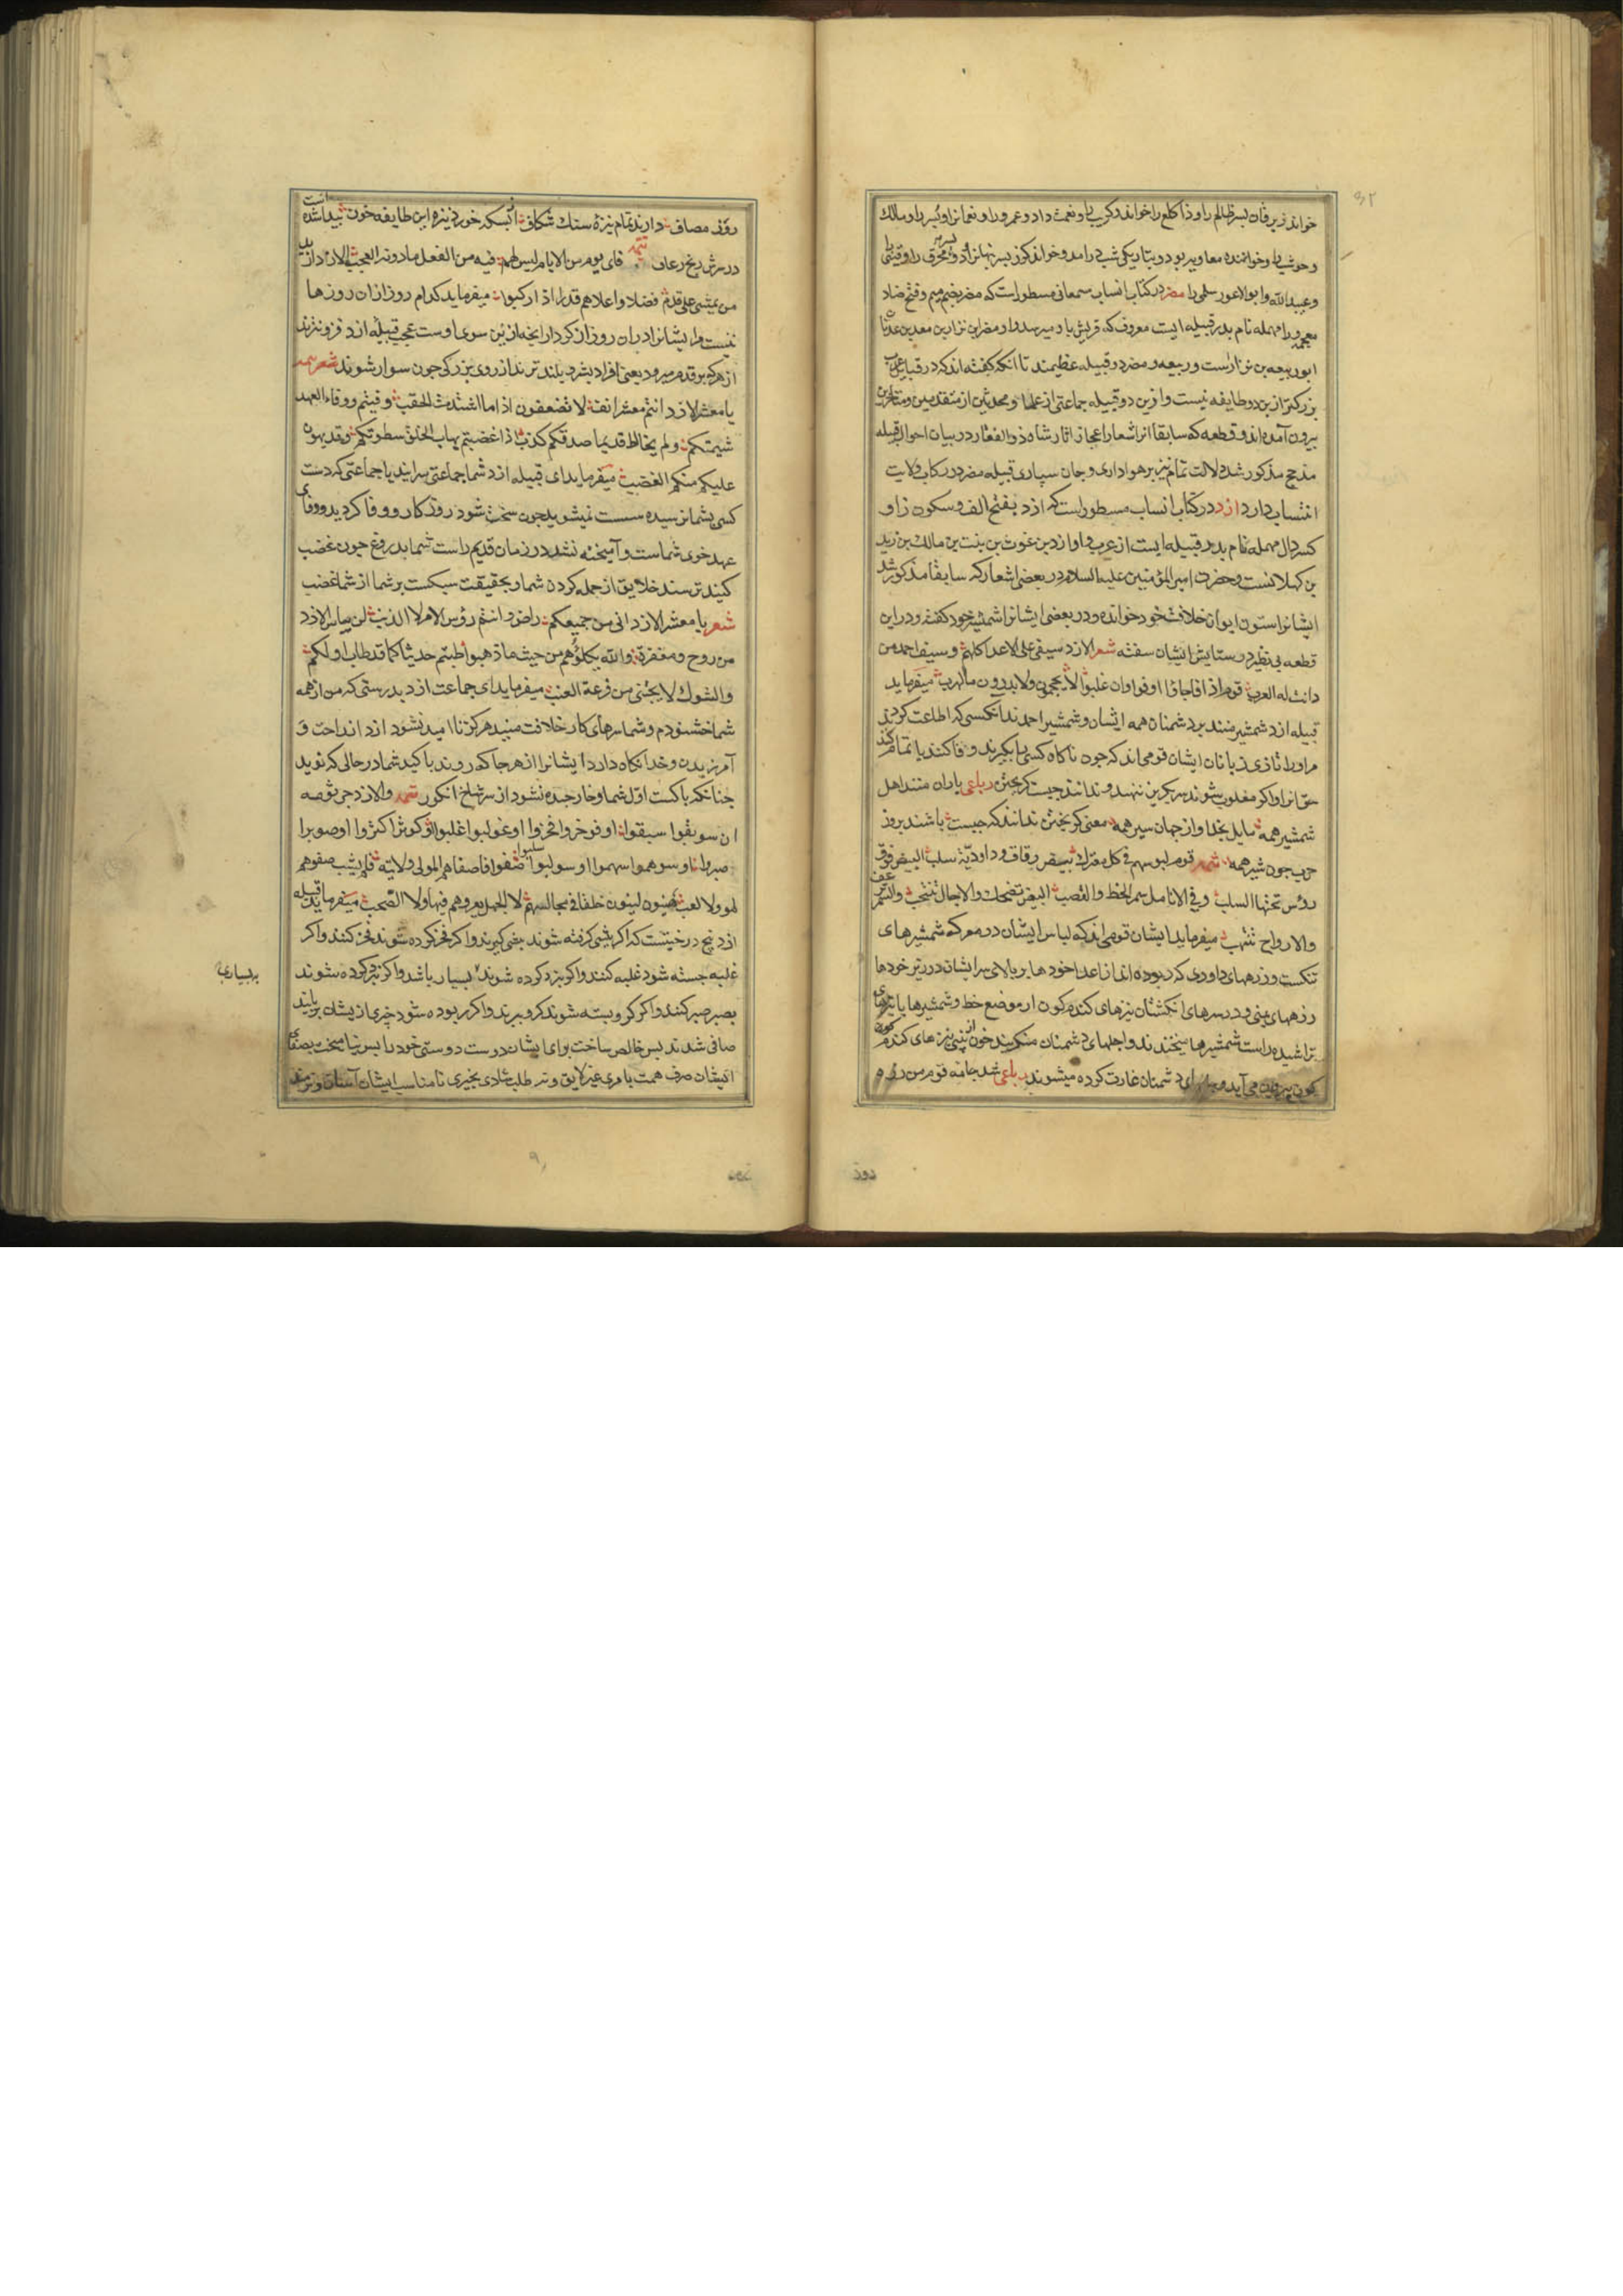 خواند زبرقان پسر ظالم را و ذا کلع را خواند و کریب را و نعمت داد و عمرو را و نعمانرا و بسر را و مالک
و حوشب را و خواننده معاویه بود در تاریکی شب درآمد و خواند کرز پسر نبهانرا و
و عبید الله و ابو الاعور سلمی را مضر در کتاب انساب سمعانی مسطور است که مضر بضم میم و فتح ضاد
معجمه و را مهمله نام پدر قبیله ایست معروف که قریش باو میرسد و او مضر بن نزار بن معد بن عدنان
ابو ربیعه بن نزارست و ربیعه و مضر دو قبیله عظیمند تا آنکه گفته اند که در قبایل عرب
بزرکتر ازین دو طایفه نیست و ازین دو قبیله جماعتی از علما و محدثین از متقدمین و متاخرین
بیرون آمده اند و قطعه که سابقا از اشعار اعجاز اثار شاه ذو الفقار در بیان احوال قبیله
مذحج مذکور شد دلالت تمام نیز بر هواداری و جان سپاری قبیله مضر در رکاب ولایت
انتساب دارد ازد در کتاب انساب مسطور است که ازد بفتح الف و سکون زا و
کسر دال مهمله نام پدر قبیله ایست از عرب و او ازد بن غوث بن بنت بن مالک بن زید
بن کهلانست و حضرت امیر المؤمنین علیه السلام در بعضی اشعار که سابقا مذکور شد
ایشانرا ستون ایوان خلافت خود خوانده و در بعضی ایشانرا شمشیر خود گفته و در این
قطعه بی نظیر در ستایش ایشان سفته شعر الازد سیفی علی الاعدا کلهم و سیف احمد من
دانت له العرب قوم اذا فاجاؤا اوفوا و ان غلبوا لا یحجمون و لا یدرون ما الهرب میفرماید
قبیله ازد شمشیر منند بر دشمنان همه ایشان و شمشیر احمدند آنکسی که اطاعت کردند
مر او را تازی زبانان ایشان قومی اند که چون ناکاه کسی را بکیرند وفا کنند یا تمام کنند
حق او را و اگر مغلوب شوند سر بکریز ننهند و ندانند چیست کریختن رباعی یاران منند اهل
شمشیر همه مایل بخدا و از جهان سیر همه معنی کریختن ندانند که چیست باشند بروز
حرب چون شیر همه شعر قوم لبوسهم فی کل معترک بیض رقاق و داودیة سلب البیض فوق
رؤس تحتها السلب و فی الانامل سمر الخط و القضب البیض تضحک و الاجال تنتحب و السمر ترعف
والارواح تنتهب میفرماید ایشان قومی اند که لباس ایشان در معرکه شمشیرهای
تنکست و زرههای داودی که ربوده اند از اعدا خودها بر بالای سر ایشان در زیر خودها
زرههای یمنی و در سرهای انکشتان نیزهای کندم کون از موضع خط و شمشیرها یا تیرهای
تراشیده راست شمشیرها میخندند و اجلهای دشمنان میکریند خون از بینی نیزهای کندم
کون بیرون می آید و جانهای دشمنان غارت کرده میشوند رباعی شد جامه قوم من زره
روز
روز مصاف دارند تمام نیزهٔ سنک شکاف از بسکه خورد نیزه این طایفه خون پیدا شده است
در سرش رنج رعاف شعر فای یوم من الایام لیس لهم فیه من الفعل ما دونه العجب الازد ازید
من یمشی علی قدم فضلا و اعلاهم قدرا اذا رکبوا میفرماید کدام روز از ان روزها
نیست مر ایشانرا در ان روز از کردار انچه از پس سوی اوست عجب قبیله ازد فزونترند
از هر که بر قدم میرود یعنی افراد بشر و بلندترند از روی بزرکی چون سوار شوند شعر
یا معشر الازد انتم معشر انف لا تضعفون اذا ما اشتدت الحقب وفیتم و وفاء العهد
شیمتکم و لم یخالط قدیما صدقکم کذب اذا غضبتم یهاب الخلق سطوتکم و قد یهون
علیکم منکم الغضب میفرماید ای قبیله ازد شما جماعتی سرایید یا جماعتی که دست
کسی بشما نرسیده سست نمیشوید چون سخت شود روزکار و وفا کردید و وفای
عهد خوی شماست و آمیخته نشد در زمان قدیم راست شما بدروغ چون غضب
کنید ترسند خلایق از حمله کردن شما و بحقیقت سبکست بر شما از شما غضب
شعر یا معشر الازد انی من جمیعکم راض و انتم رؤس الامر لا الذنب لن ییاس الازد
من روح و مغفرة والله یکلؤهم من حیث ما ذهبوا طبتم حدیثا کما قد طاب اولکم
والشوک لا یجتنی من فرعه العنب میفرماید ای جماعت ازد بدرستی که من از همه
شما خشنودم و شما سرهای کار خلافت منید هرکز نا امید نشود ازد از راحت و
آمرزیدن و خدا نکاه دارد ایشانرا از هر جا که روند پاکید شما در حالی که نوید
چنانکه پاکست اول شما و خار چیده نشود از سر شاخ انکور شعر والازد جرثومه
ان سوبقوا سبقوا او فوخروا فخروا او غولبوا غلبوا او کوثروا کثروا او صوبروا
صبروا او سوهموا سهموا او سولبوا سلبوا صفوا فاصفاهم المولی ولایته فلم یشب صفوهم
لهو و لا لعب هینون لینون خلقا فی مجالسهم لا الجهل یعروهم فیها و لا الصخب میفرماید قبیله
ازد بیخ درختیست که اکر پیشی کرفته شوند پیشی کیرند و اکر فخر کرده شوند فخر کنند و اکر
غلبه جسته شود غلبه کنند و اکر نبرد کرده شوند بسیار باشد و اکر نبرد کرده شوند
به بسیاری
بصبر صبر کنند و اکر کرو بسته شوند کرو ببرند و اکر ربوده شود چیزی ازیشان بربایند
صافی شدند پس خالص ساخت برای ایشان دوست دوستی خود را پس نیامیخت بصفای
ایشان صرف همت بامری غیر لایق و نه طلب شادی بچیزی نامناسب ایشان آسان و نرمند